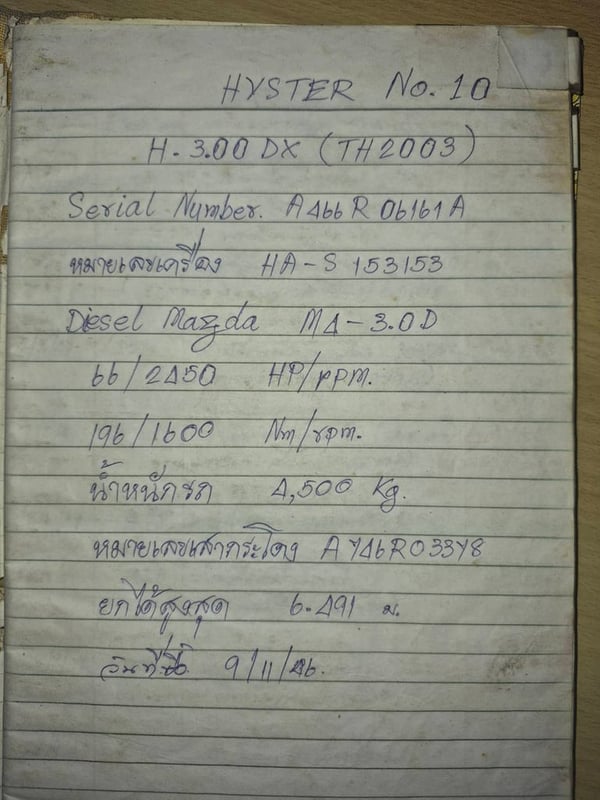 HYSTER No. 10
H-3.00 DX (TH2003)
Serial Number. A466R06161A
หมายเลขเครื่อง HA-S 153153
Diesel Mazda M4-3.0D
66/2450 HP/rpm.
196/1600 Nm/rpm.
น้ำหนักรถ 4,500 Kg.
หมายเลขเสากระโดง A746R03378
ยกได้สูงสุด 6.491 ม.
วันที่ซื้อ 9/11/46.